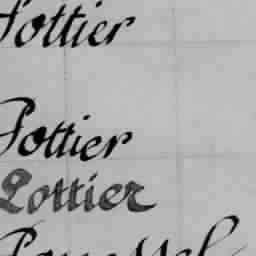 Pottier
Pottier
Pottier